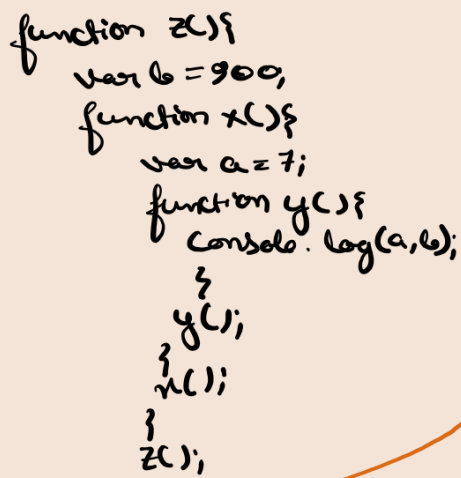 function z(){
var b = 900;
function x(){
var a = 7;
function y(){
console.log(a,b);
}
y();
}
x();
}
z();